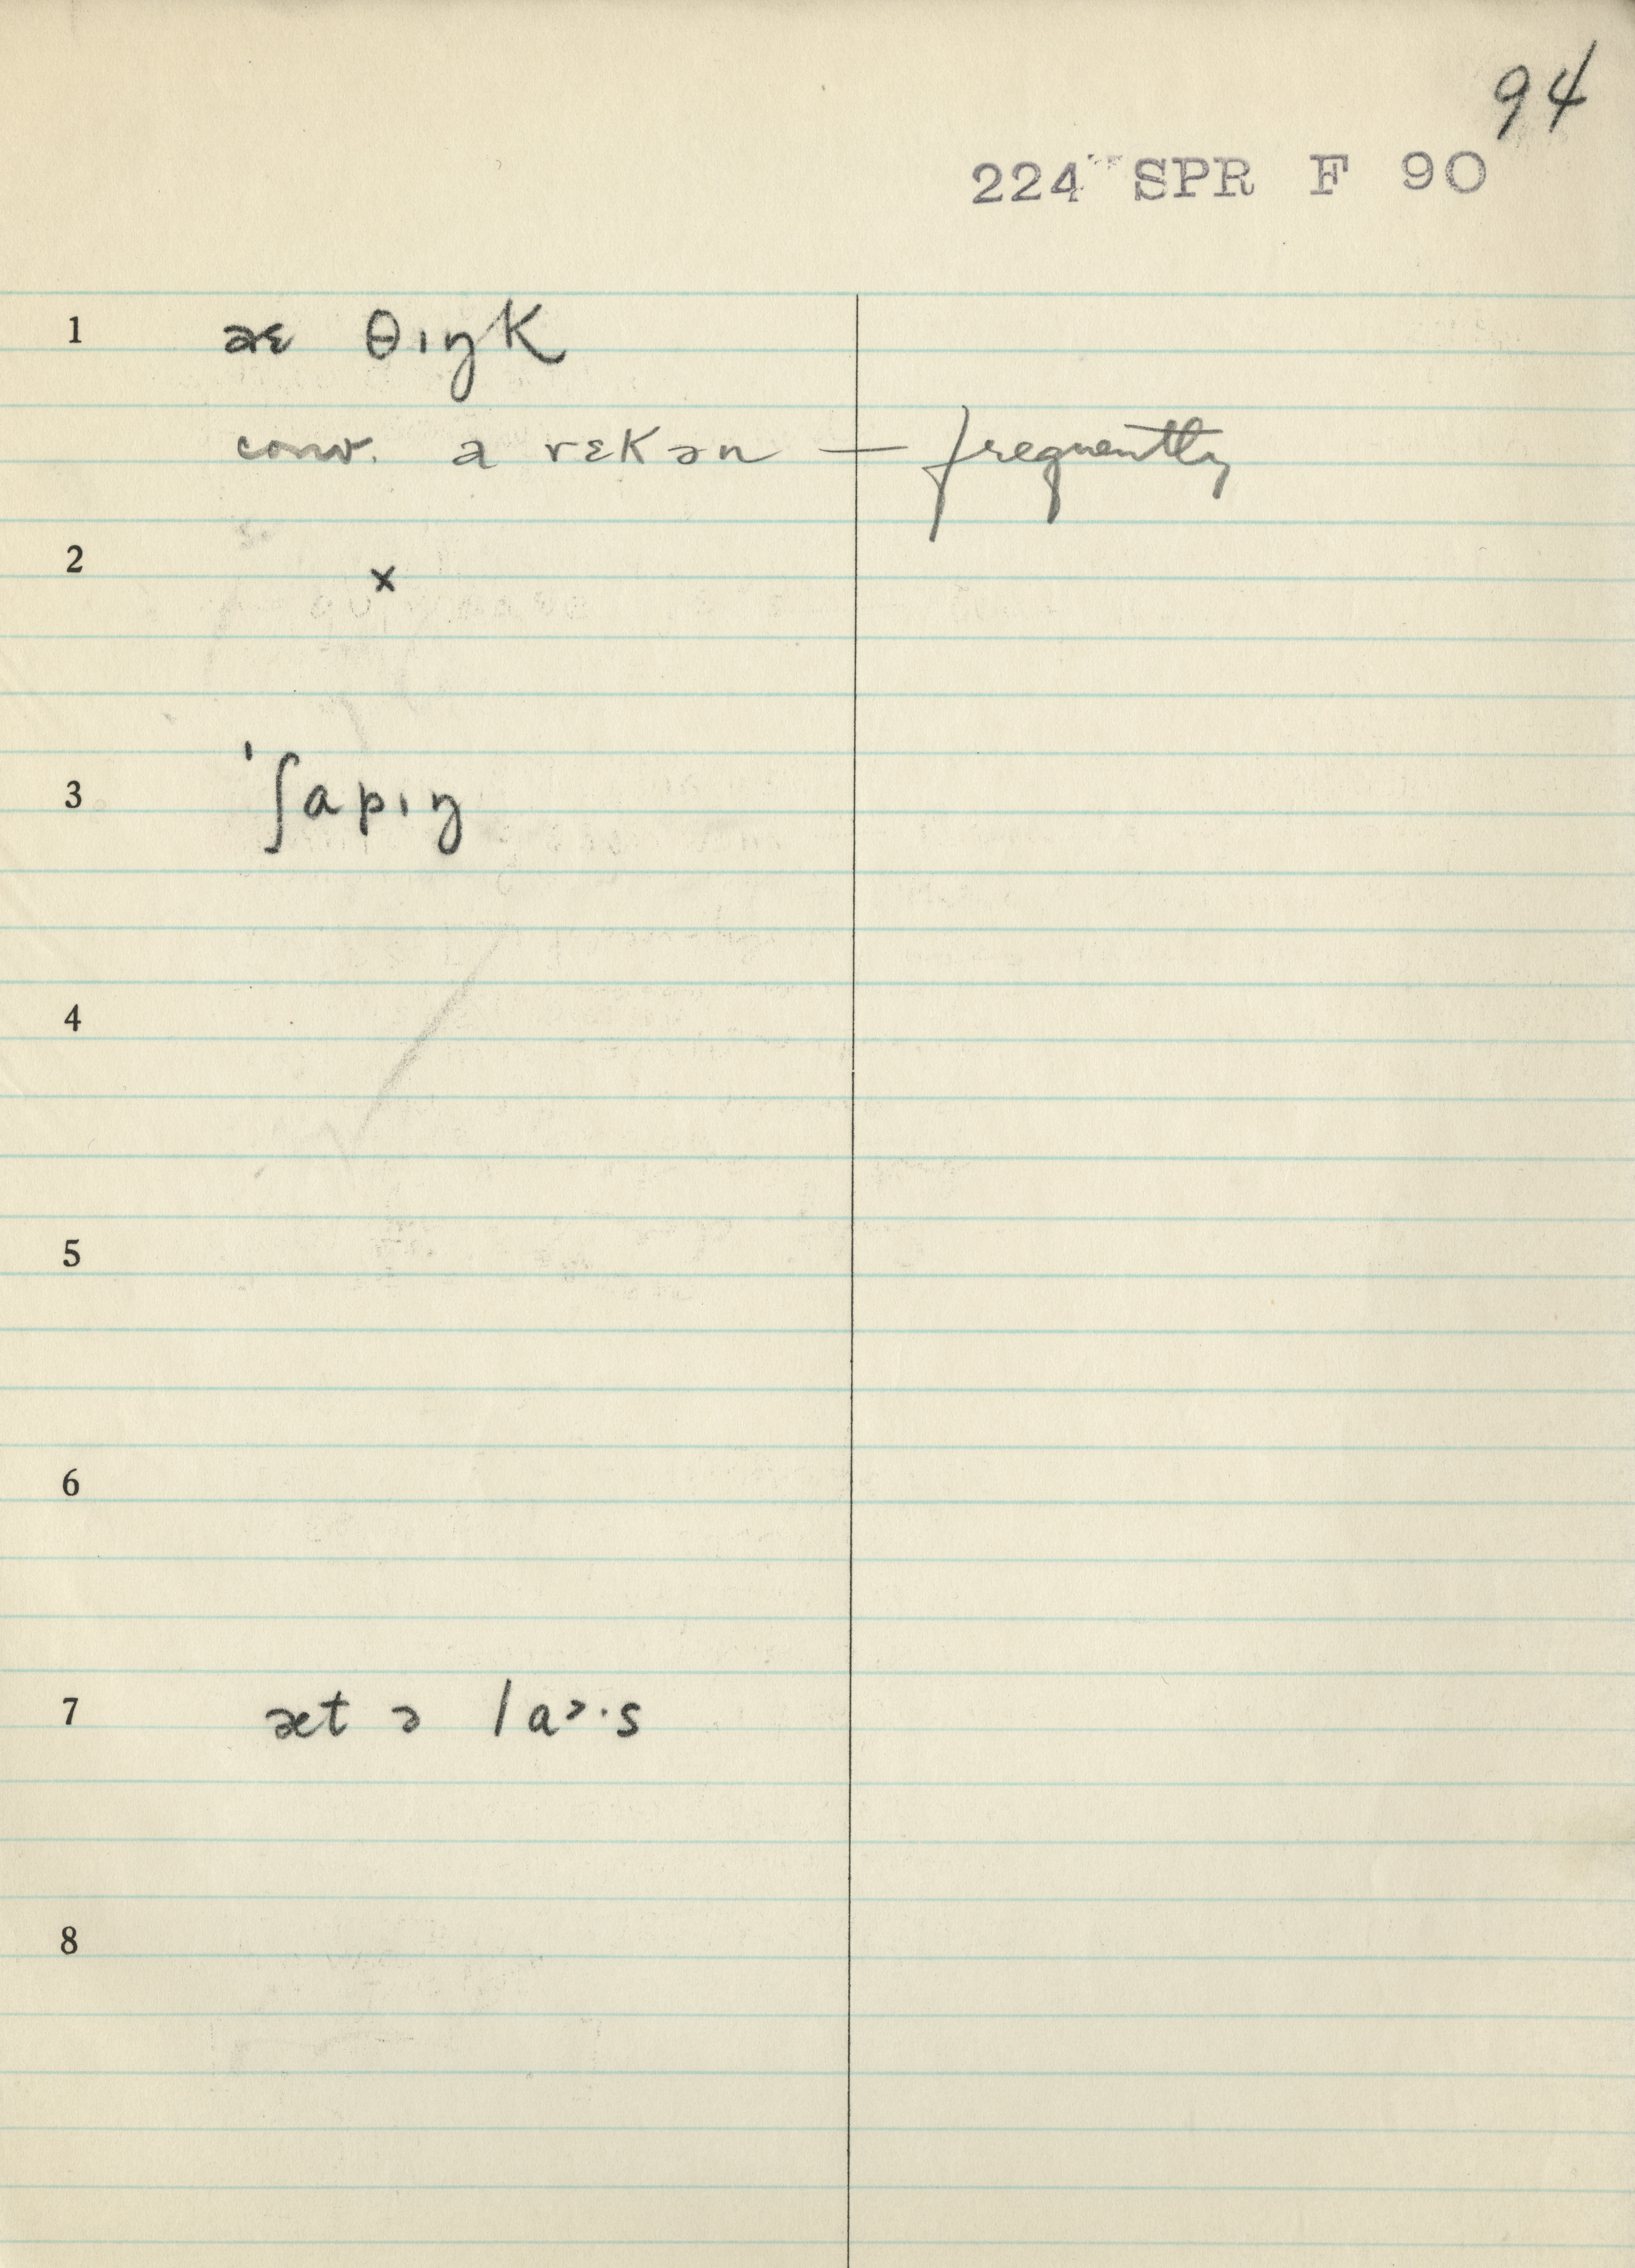 94
224 SPR F 90
1 aɛ θɪŋk
conv. a rɛkən — frequently
2 x
3 ˈʃapɪŋ
4
5
6
7 æt ə
8